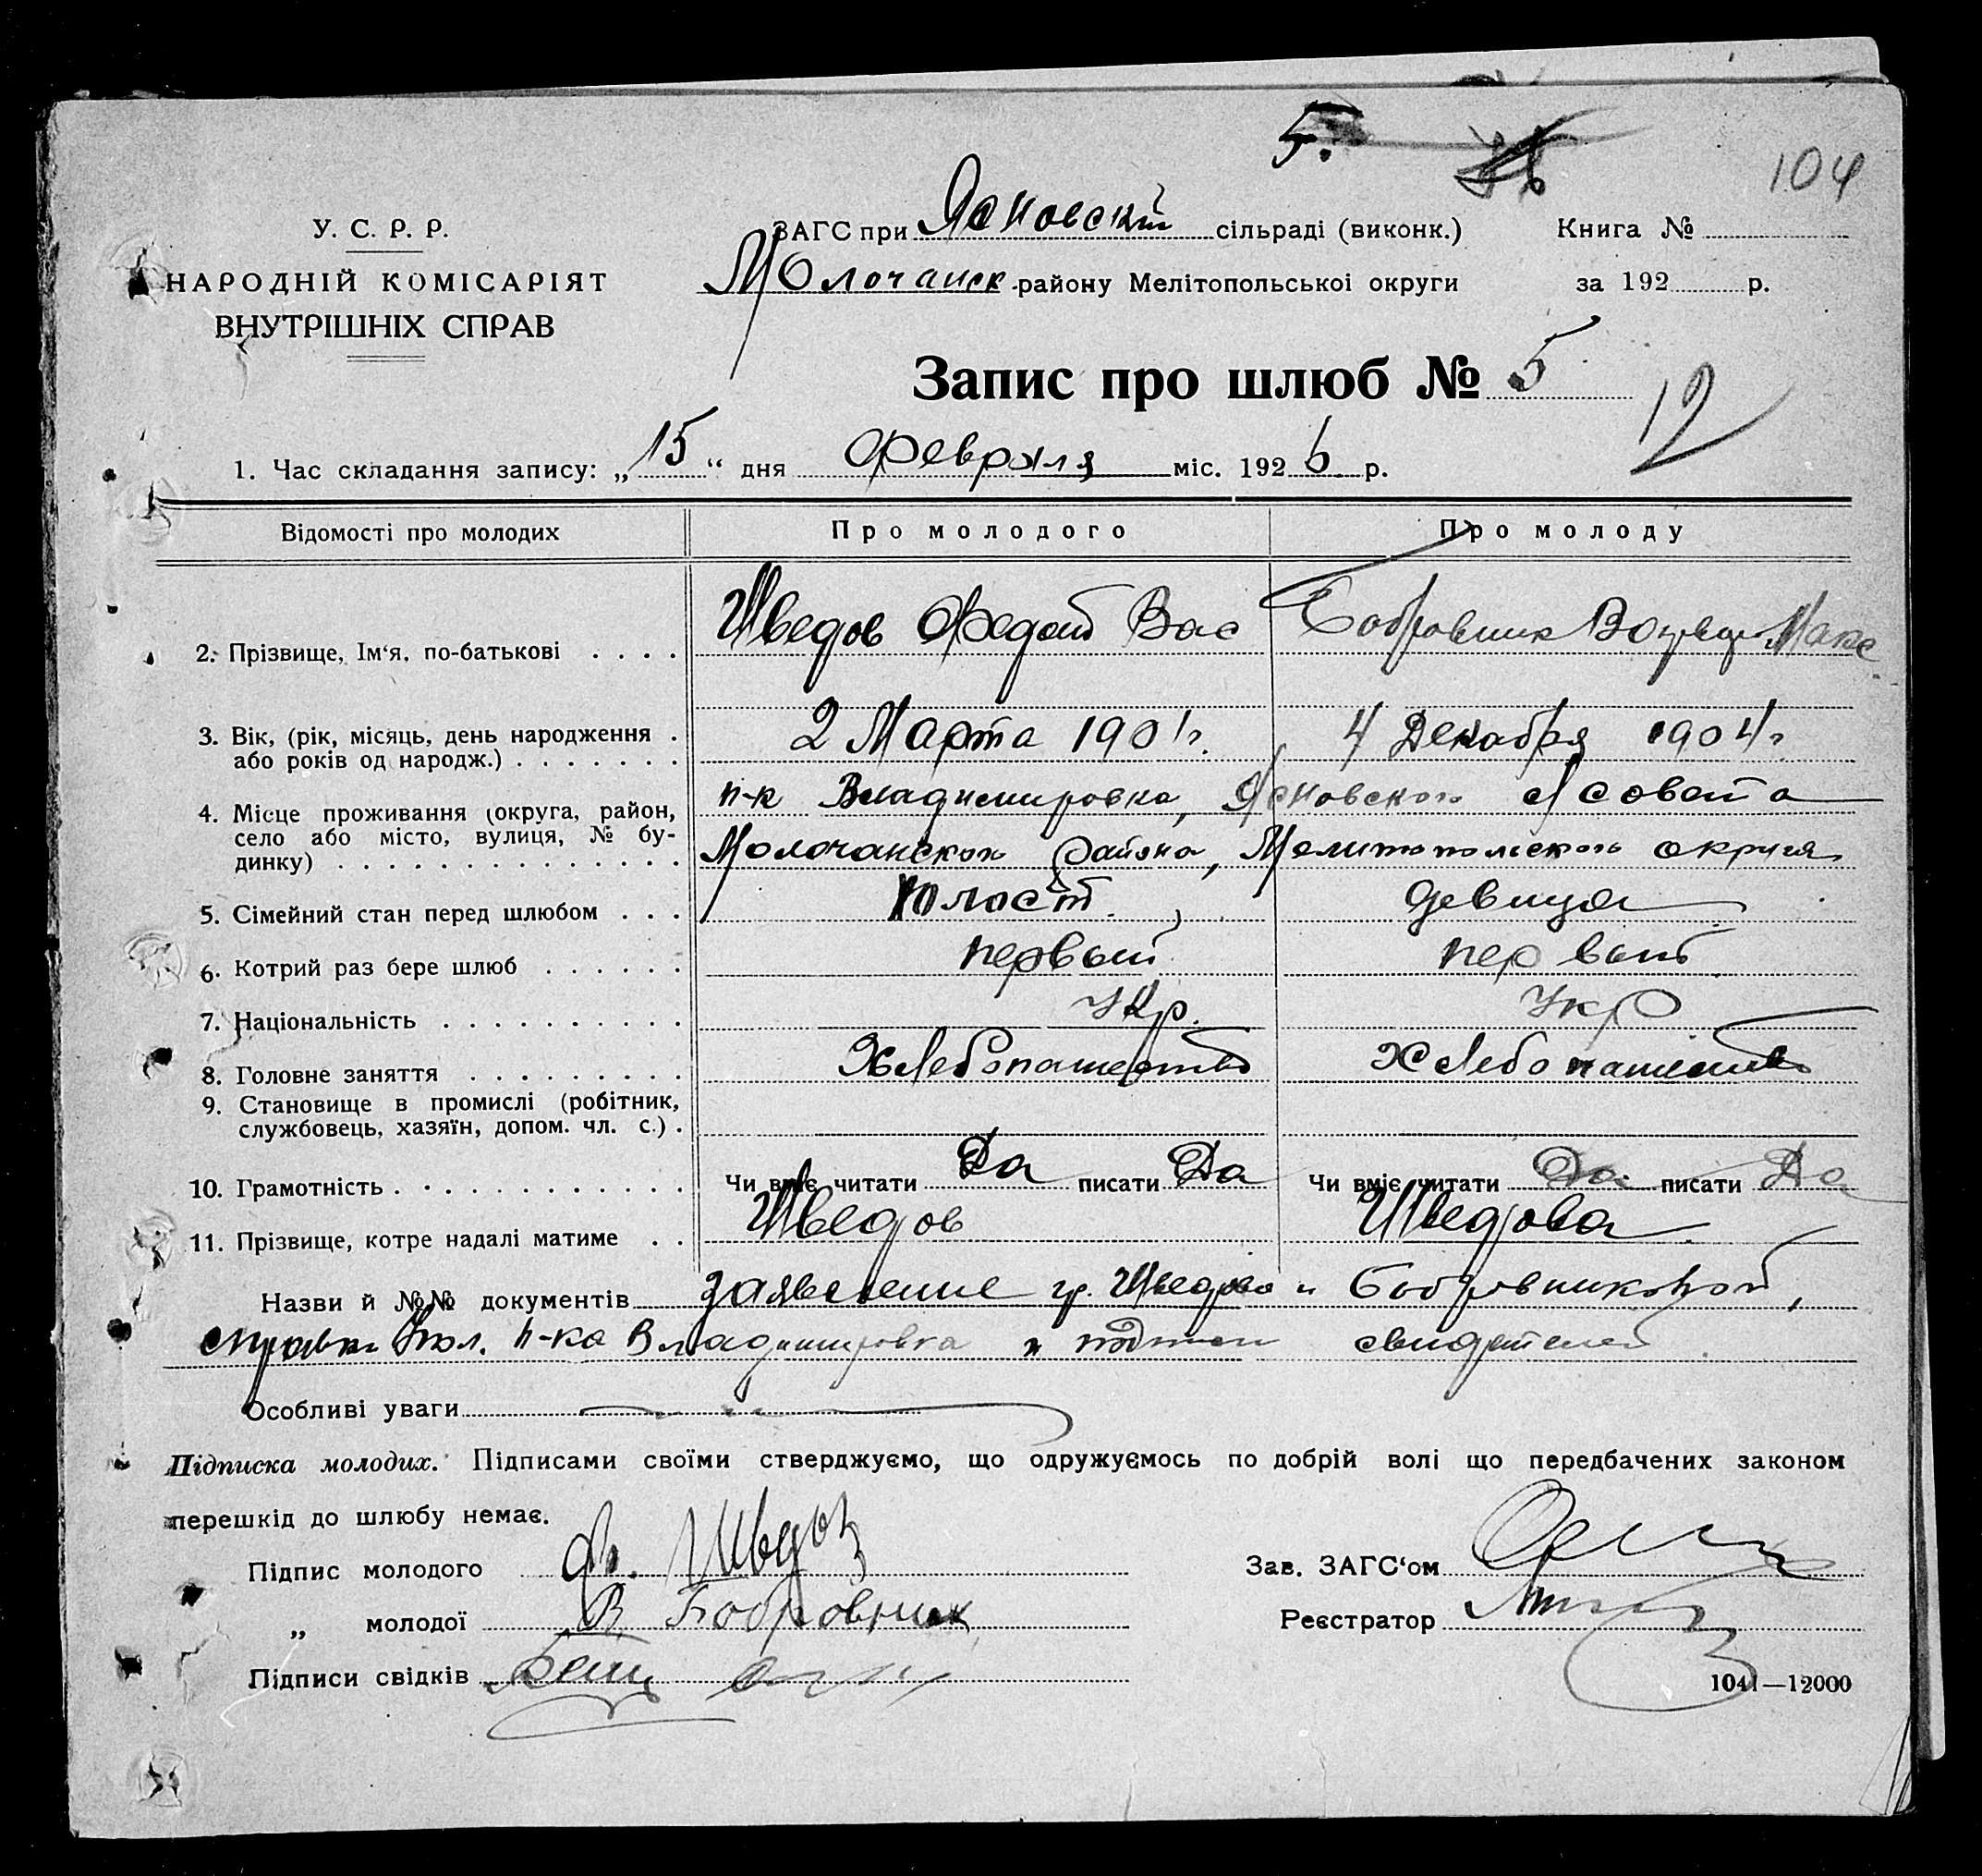 5.
104
У. С. Р. Р.
НАРОДНІЙ КОМІСАРІЯТ
ВНУТРІШНІХ СПРАВ
ЗАГС при Ясновскій сільраді (виконк.)
Молочанск району Мелітопольської округи
Книга №
за 192 р.
Запис про шлюб № 5
12
1. Час складання запису: „15“ дня Февраля міс. 1926 р.
Відомості про молодих Про молодого Про молоду
2. Прізвище, Ім‘я, по-батькові . . . . Шведов Федот Вас Бобровник Макс
3. Вік, (рік, місяць, день народження . 2 Марта 1901 г. 4 Декабря 1904 г
або років од народж.) . . . . . . .
4. Місце проживання (округа, район, п-к Владимировка, Ясновского с/совета
село або місто, вулиця, № бу- Молочанского района, Мелитопольского округа
динку) . . . . . . . . . . . . . .
5. Сімейний стан перед шлюбом . . . холост девица
6. Котрий раз бере шлюб . . . . . . первый первый
7. Національність . . . . . . . . . . Укр. Укр
8. Головне заняття . . . . . . . . . Хлебопашество Хлебопашество
9. Становище в промислі (робітник,
службовець, хазяїн, допом. чл. с.) .
10. Грамотність . . . . . . . . . . . . Чи вміє читати Да писати Да Чи вміє читати Да писати Да
11. Прізвище, котре надалі матиме . . Шведов Шведова
Назви й №№ документів заявление гр. Шведова и Бобровниковой,
справка Упол. п-ка Владимировка и свидетелей
Особливі уваги
Підписка молодих. Підписами своїми стверджуємо, що одружуємось по добрій волі що передбачених законом
перешкід до шлюбу немає.
Підпис молодого Ф. Шведов
„ молодої В Бобровник
Підписи свідків
Зав. ЗАГС‘ом
Реєстратор
1041—12000